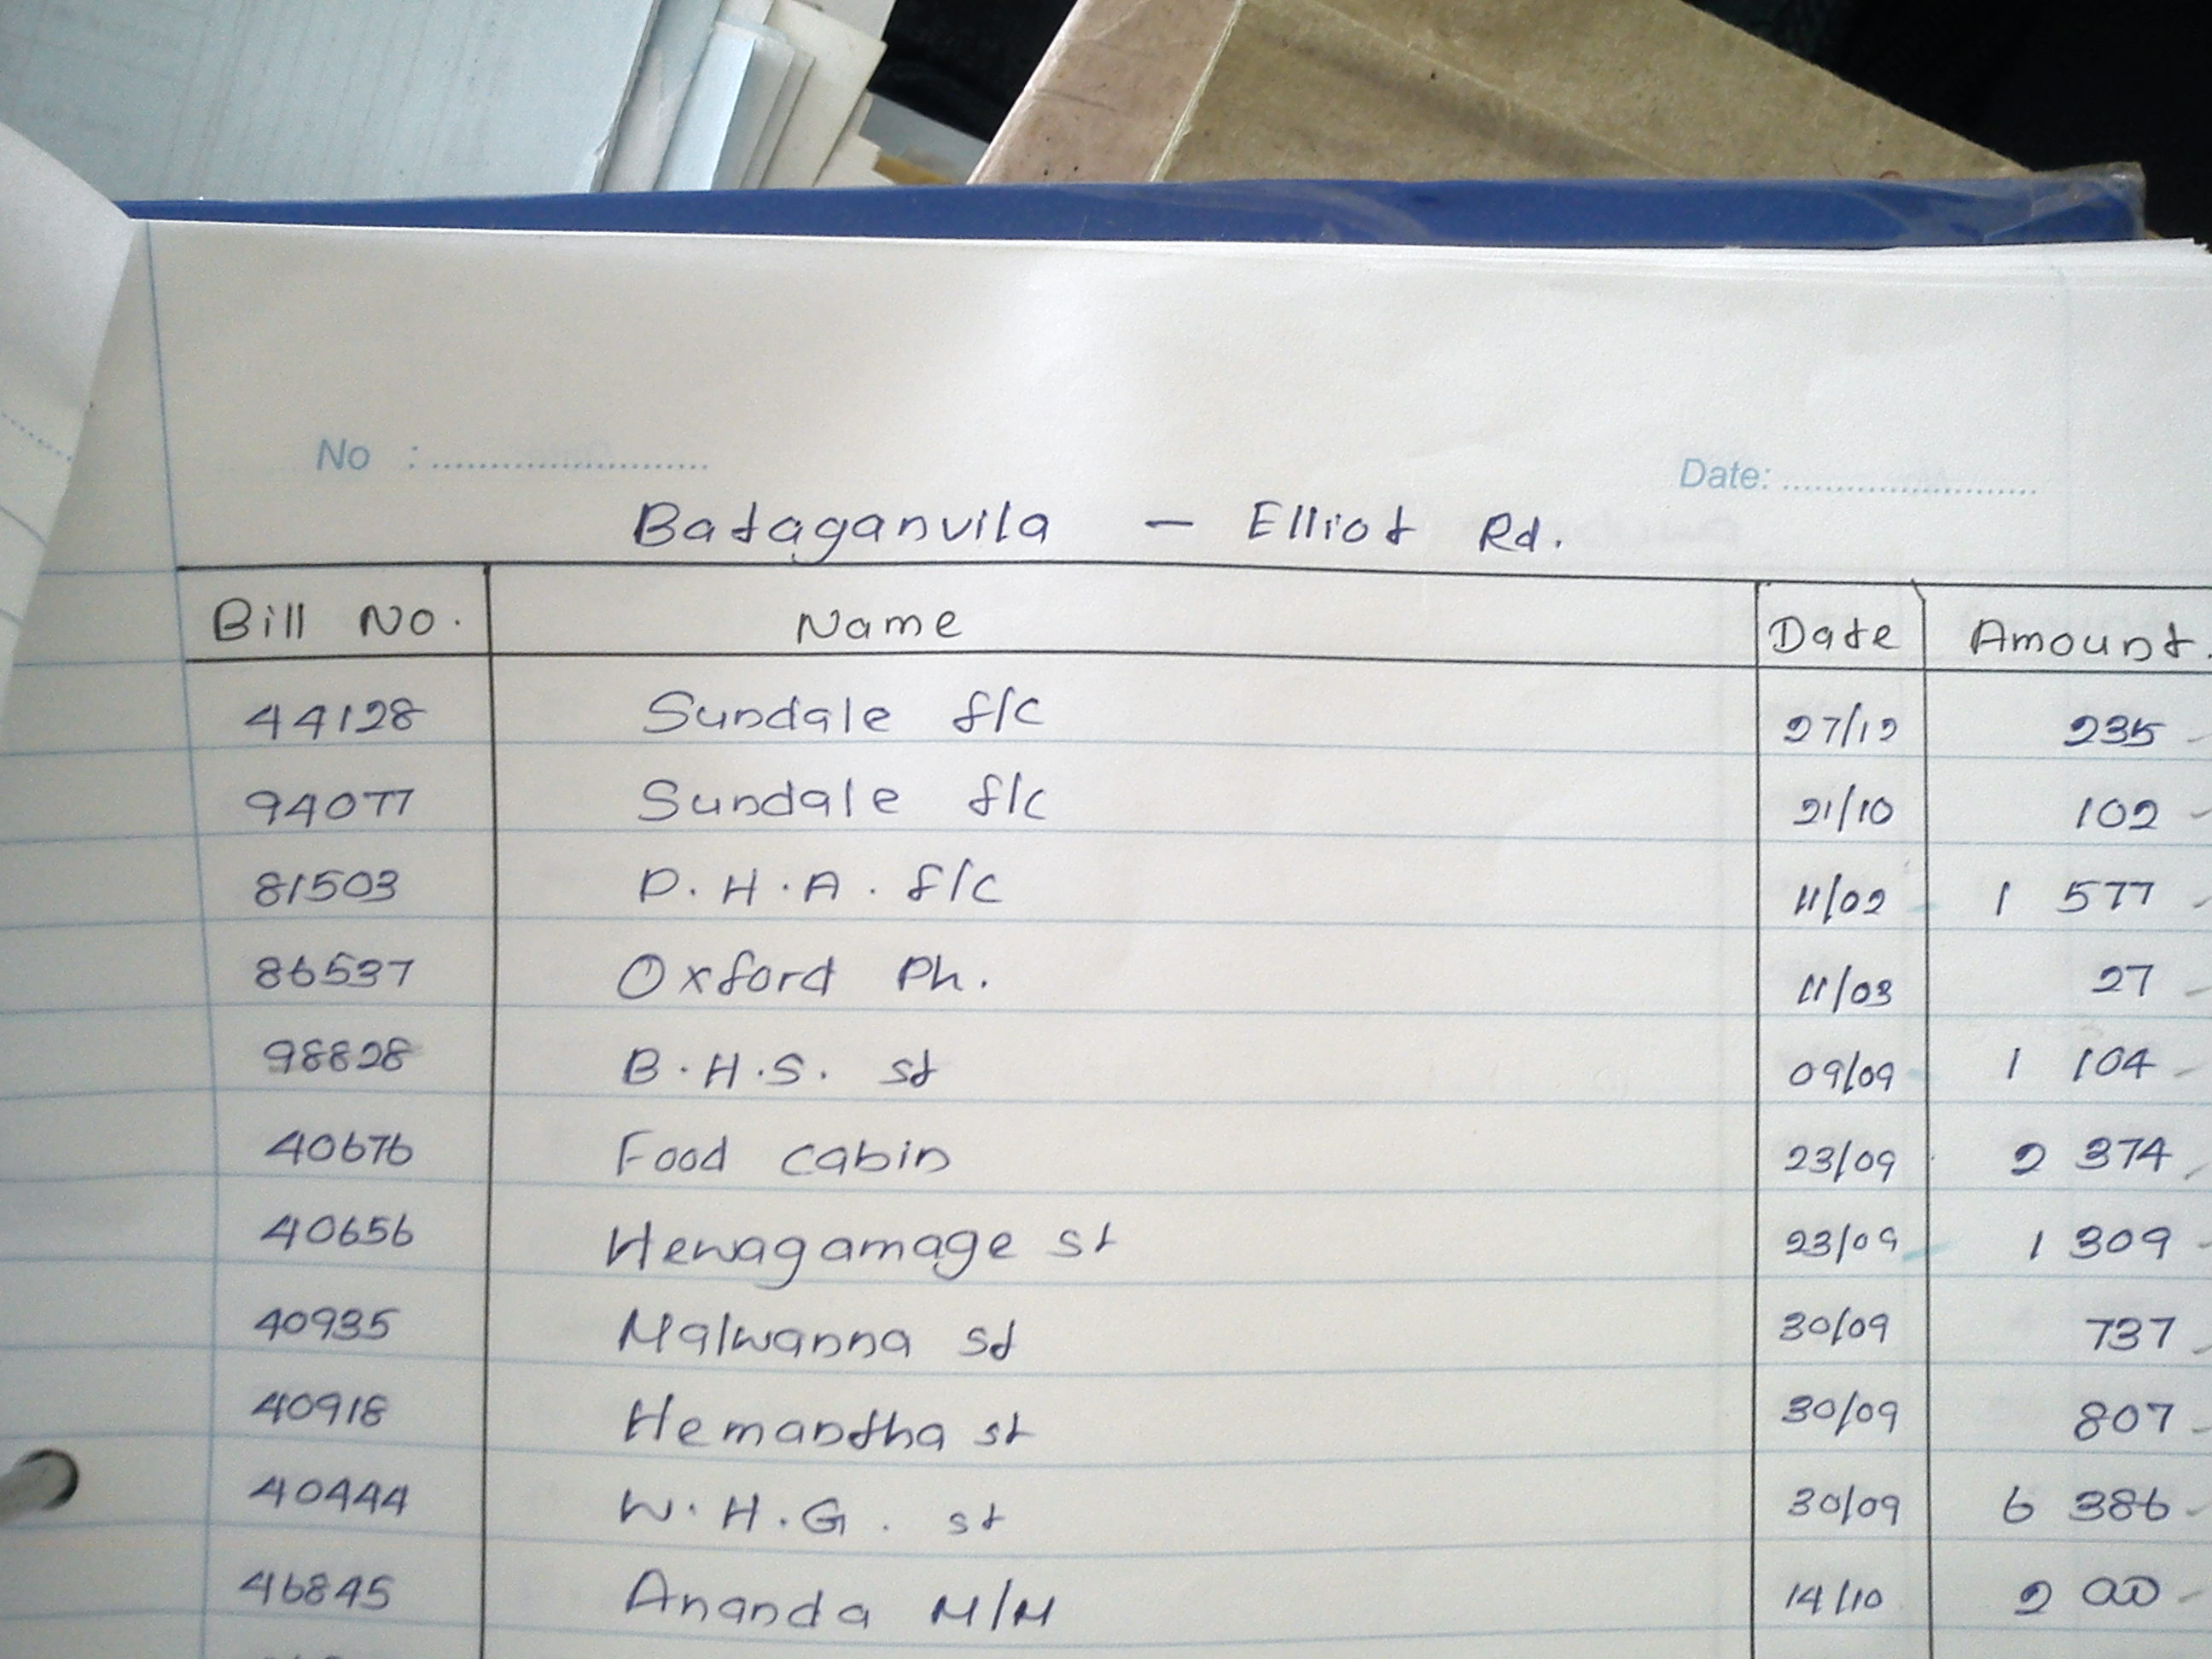 No : ........................ Date: ........................
Bataganvila — Elliot Rd.
Bill No. Name Date Amount.
44128 Sundale f/c 27/12 235
94077 Sundale f/c 21/10 102
81503 D.H.A. f/c 11/02 1 577
86537 Oxford Ph. 11/03 27
98828 B.H.S. st 09/09 1 104
40676 Food cabin 23/09 2 374
40656 Hewagamage st 23/09 1 309
40935 Malwanna st 30/09 737
40918 Hemantha st 30/09 807
40444 W.H.G. st 30/09 6 386
46845 Ananda M/M 14/10 2 000